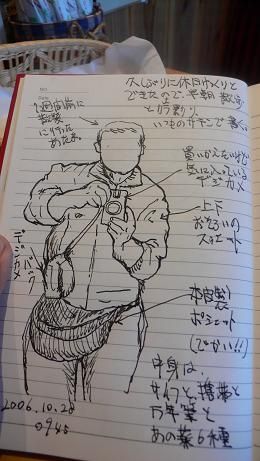 久しぶりに休日ゆっくりと
できたので、早朝散歩
とカラ影り、
いつものサテンで書く。
1週間前に
散髪
に行った
あたま。
買いかえないけれど
気に入っている
デジカメ
上下
おそろいの
スウェット
デジカメ
バック
本皮製
ポシェット
(でかい!!)
中身は、
サイフと携帯と
万年筆と
あの薬6種
2006.10.28
0945